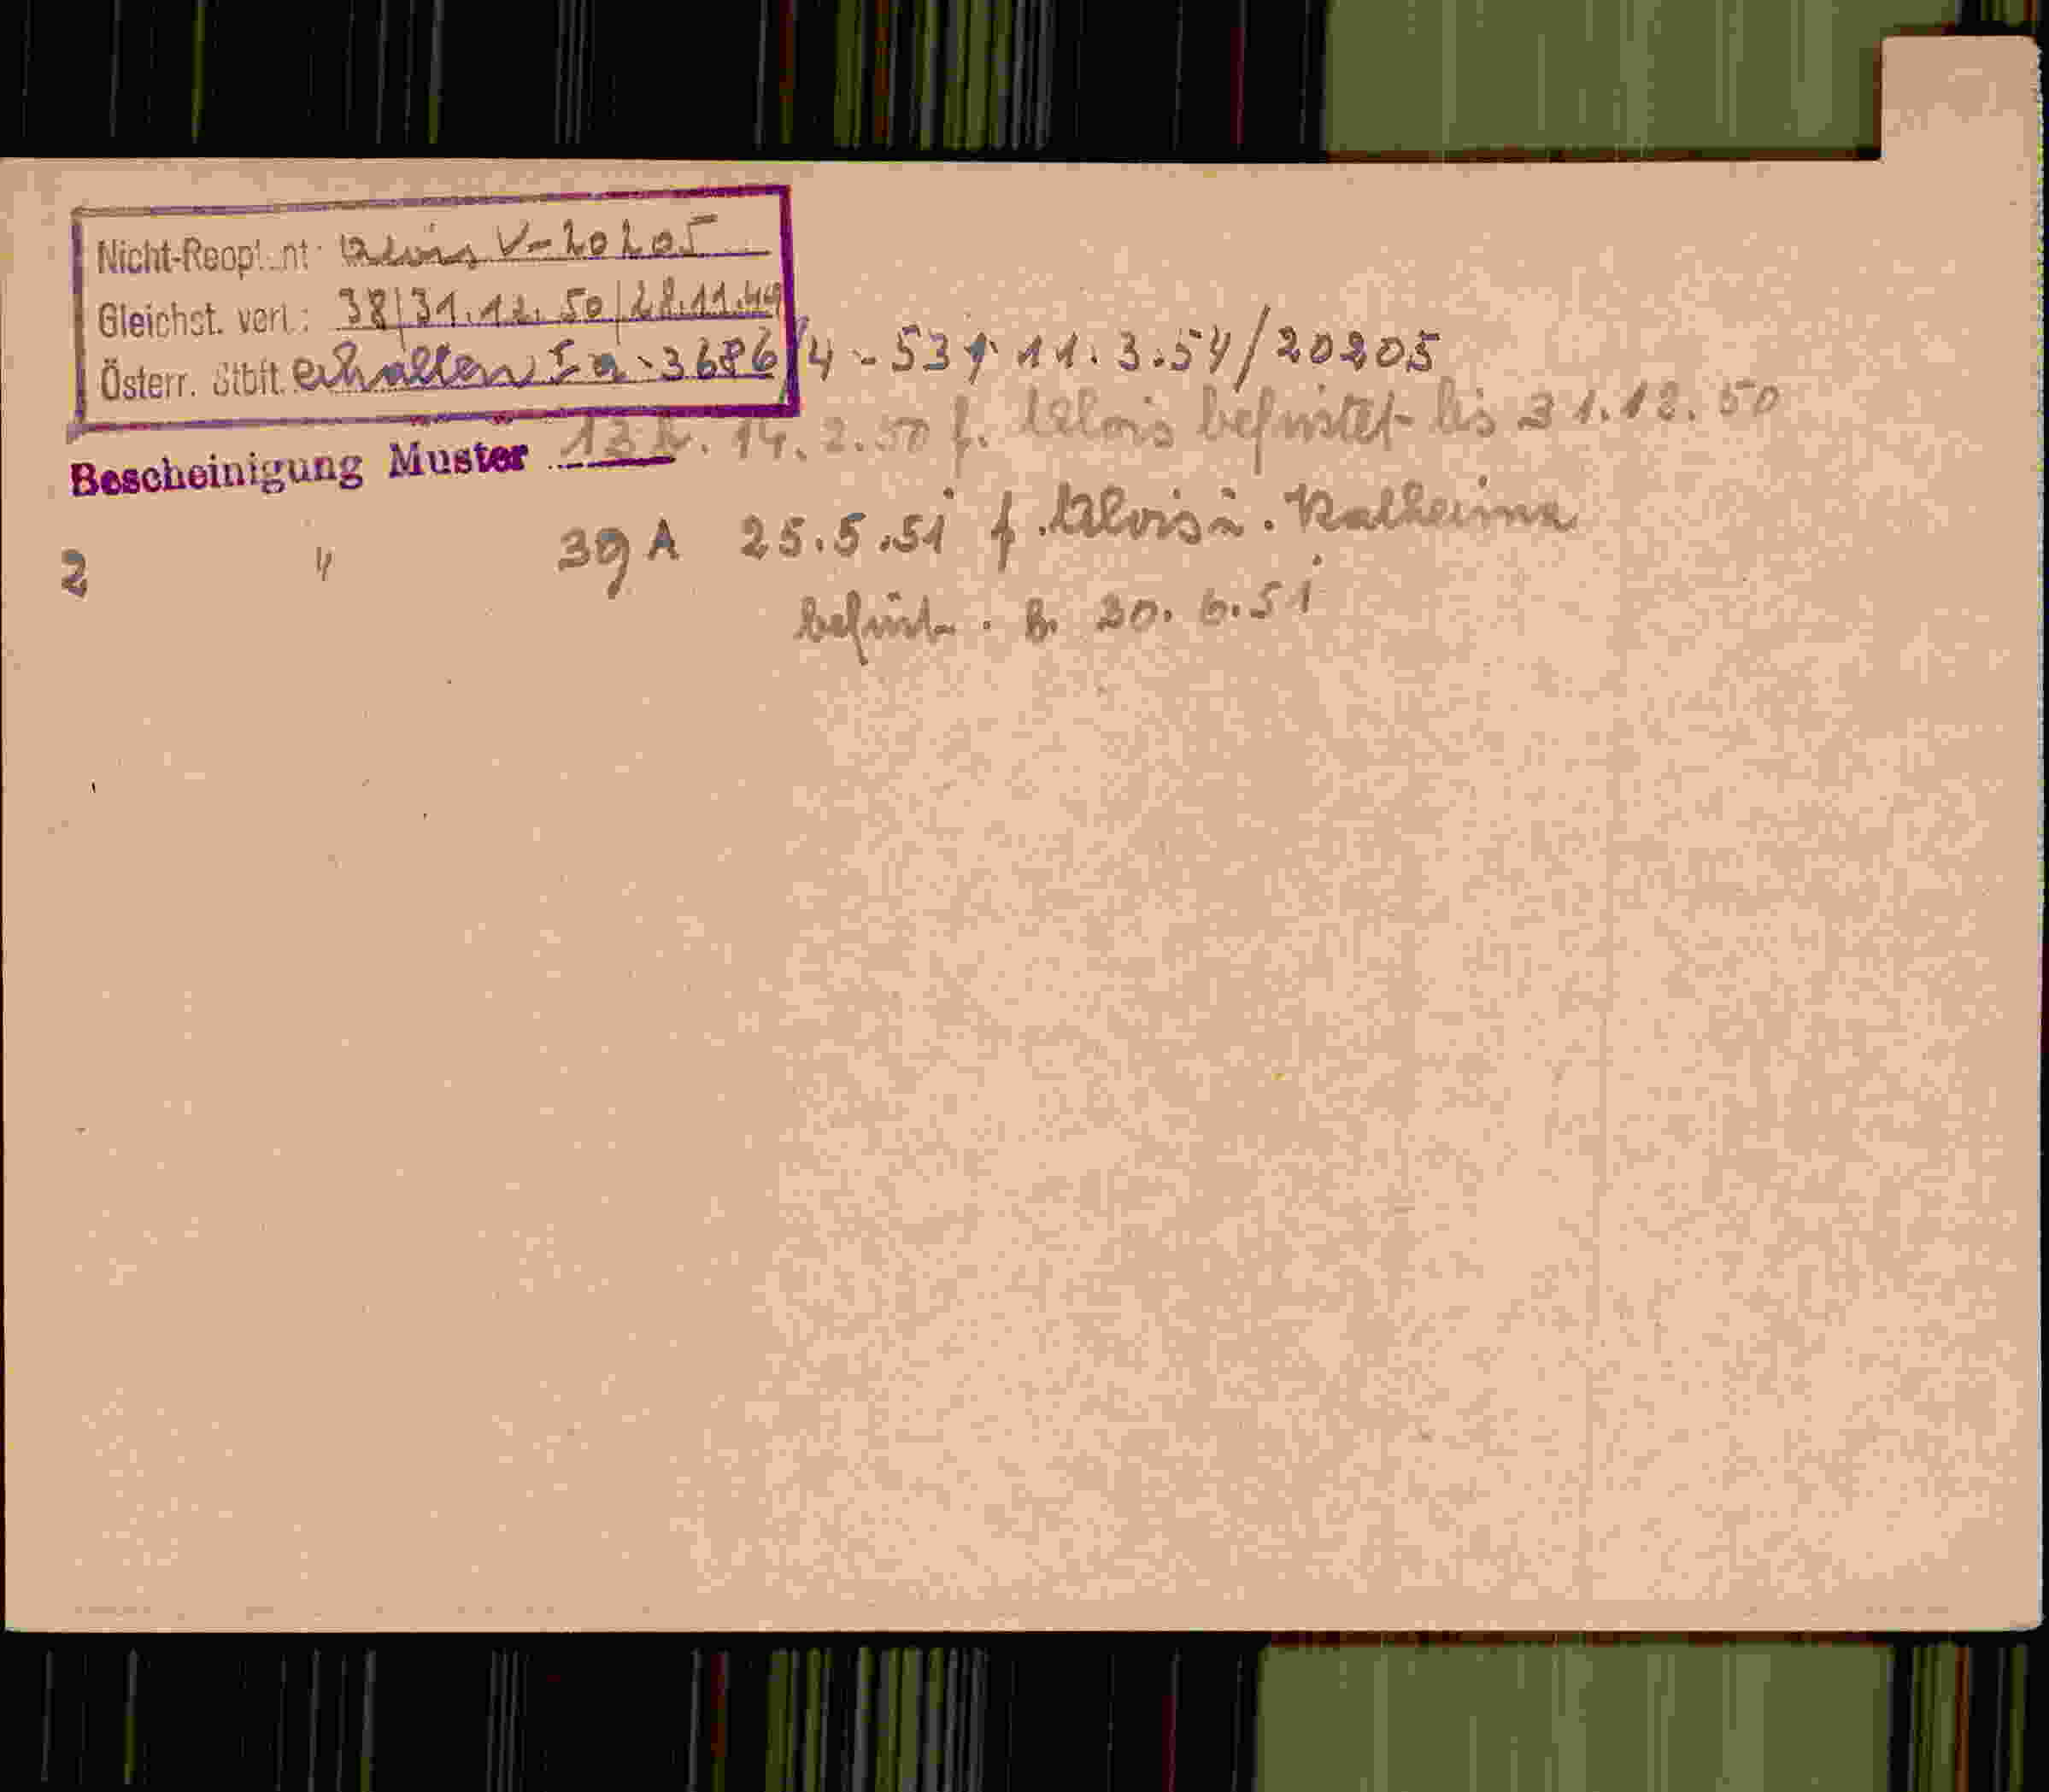 Nicht-Reoptant: Alois V-20205
Gleichst. verl.: 38/31.12.50/28.11.49
Österr. Stbft. erhalten Ia-3686/4-53 11.3.54/20205
Bescheinigung Muster 13 14.2.50 f. Alois befristet bis 31.12.50
2 " 39A 25.5.51 f. Alois u. Katharina
befrist. b. 30.6.51